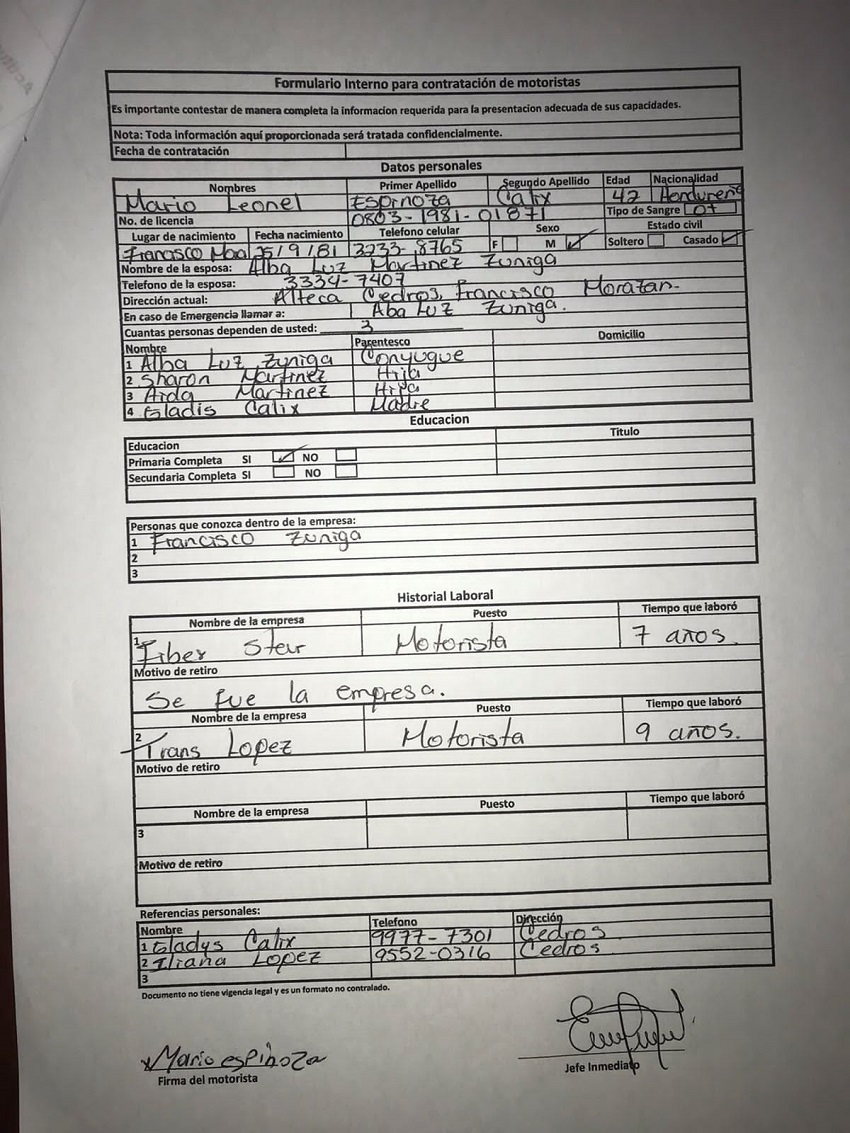 Formulario Interno para contratación de motoristas
Es importante contestar de manera completa la informacion requerida para la presentacion adecuada de sus capacidades.
Nota: Toda información aquí proporcionada será tratada confidencialmente.
Fecha de contratación
Datos personales
Nombres Primer Apellido Segundo Apellido Edad Nacionalidad
Mario Leonel Espinoza Calix 42 Hondureña
No. de licencia 0803-1981-01871 Tipo de Sangre O+
Lugar de nacimiento Fecha nacimiento Telefono celular Sexo Estado civil
Francisco Moa 25/9/81 3233-8765 F M ✓ Soltero Casado ✓
Nombre de la esposa: Alba Luz Martinez Zuniga
Telefono de la esposa: 3334-7407
Dirección actual: Alteca Cedros, Francisco Moratan.
En caso de Emergencia llamar a: Aba Luz Zuniga.
Cuantas personas dependen de usted: 3
Nombre Parentesco Domicilio
1 Alba Luz Zuniga Conyugue
2 Sharon Martinez Hija
3 Aida Martinez Hija
4 Gladis Calix Madre
Educacion
Educacion Titulo
Primaria Completa SI ✓ NO
Secundaria Completa SI NO
Personas que conozca dentro de la empresa:
1 Francisco Zuniga
2
3
Historial Laboral
Nombre de la empresa Puesto Tiempo que laboró
1 Fiber Motorista 7 años.
Motivo de retiro
Se fue la empresa.
Nombre de la empresa Puesto Tiempo que laboró
2 Trans Lopez Motorista 9 años.
Motivo de retiro
Nombre de la empresa Puesto Tiempo que laboró
3
Motivo de retiro
Referencias personales:
Nombre Telefono Dirección
1 Gladys Calix 9977-7301 Cedros
2 Iliana Lopez 9552-0316 Cedros
3
Documento no tiene vigencia legal y es un formato no contralado.
Mario espinoza
Firma del motorista Jefe Inmediato